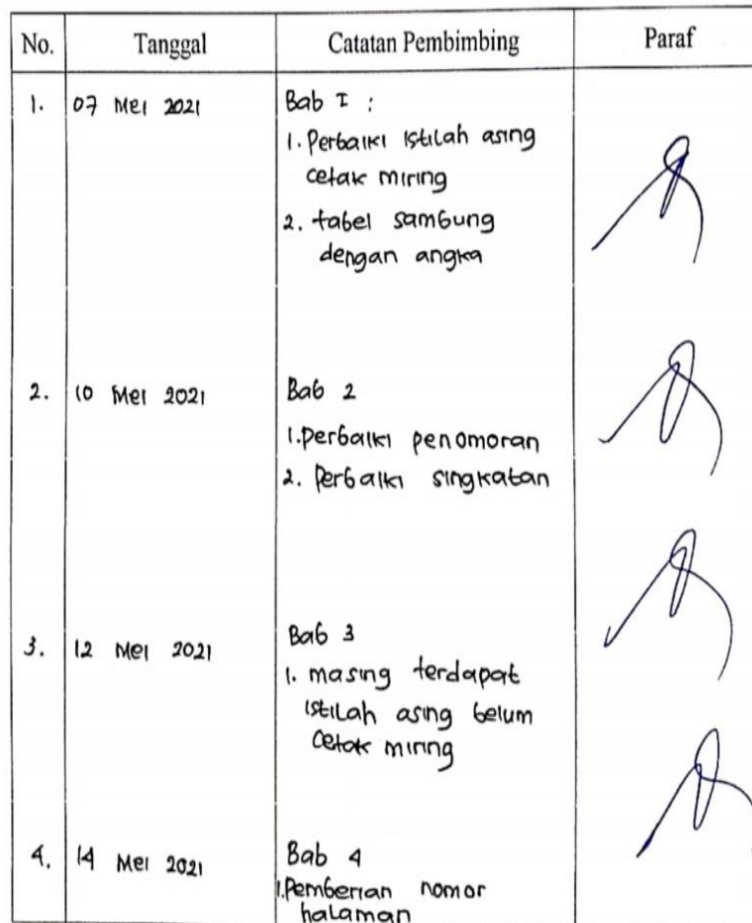 No. Tanggal Catatan Pembimbing Paraf
1. 07 Mei 2021 Bab I :
1. Perbaiki istilah asing
cetak miring
2. tabel sambung
dengan angka
2. 10 Mei 2021 Bab 2
1. perbaiki penomoran
2. Perbaiki singkatan
3. 12 Mei 2021 Bab 3
1. masing terdapat
istilah asing belum
cetak miring
4. 14 Mei 2021 Bab 4
1. Pemberian nomor
halaman